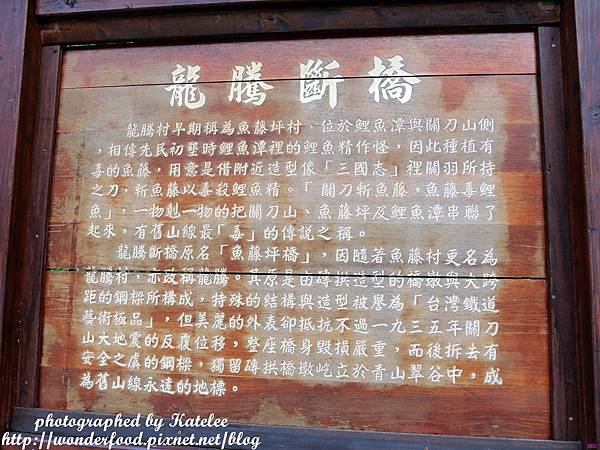 龍騰斷橋
龍騰村早期稱為魚藤坪村、位於鯉魚潭與關刀山側
，相傳先民初墾時鯉魚潭裡的鯉魚精作怪，因此種植有
毒的魚藤，用意是借附近造型像「三國志」裡關羽所持
之刀，斬魚藤以毒殺鯉魚精。「關刀斬魚藤，魚藤毒鯉
魚」，一物剋一物的把關刀山、魚藤坪及鯉魚潭串聯了
起來，有舊山線最「毒」的傳說之稱。
龍騰斷橋原名「魚藤坪橋」，因隨著魚藤村更名為
龍騰村，亦改稱龍騰。其原是由磚拱造型的橋墩與大跨
距的鋼樑所構成，特殊的結構與造型被譽為「台灣鐵道
藝術極品」，但美麗的外表卻抵抗不過一九三五年關刀
山大地震的反覆位移，整座橋身毀損嚴重，而後拆去有
安全之虞的鋼樑，獨留磚拱橋墩屹立於青山翠谷中，成
為舊山線永遠的地標。
photographed by Katelee
http://wonderfood.pixnet.net/blog